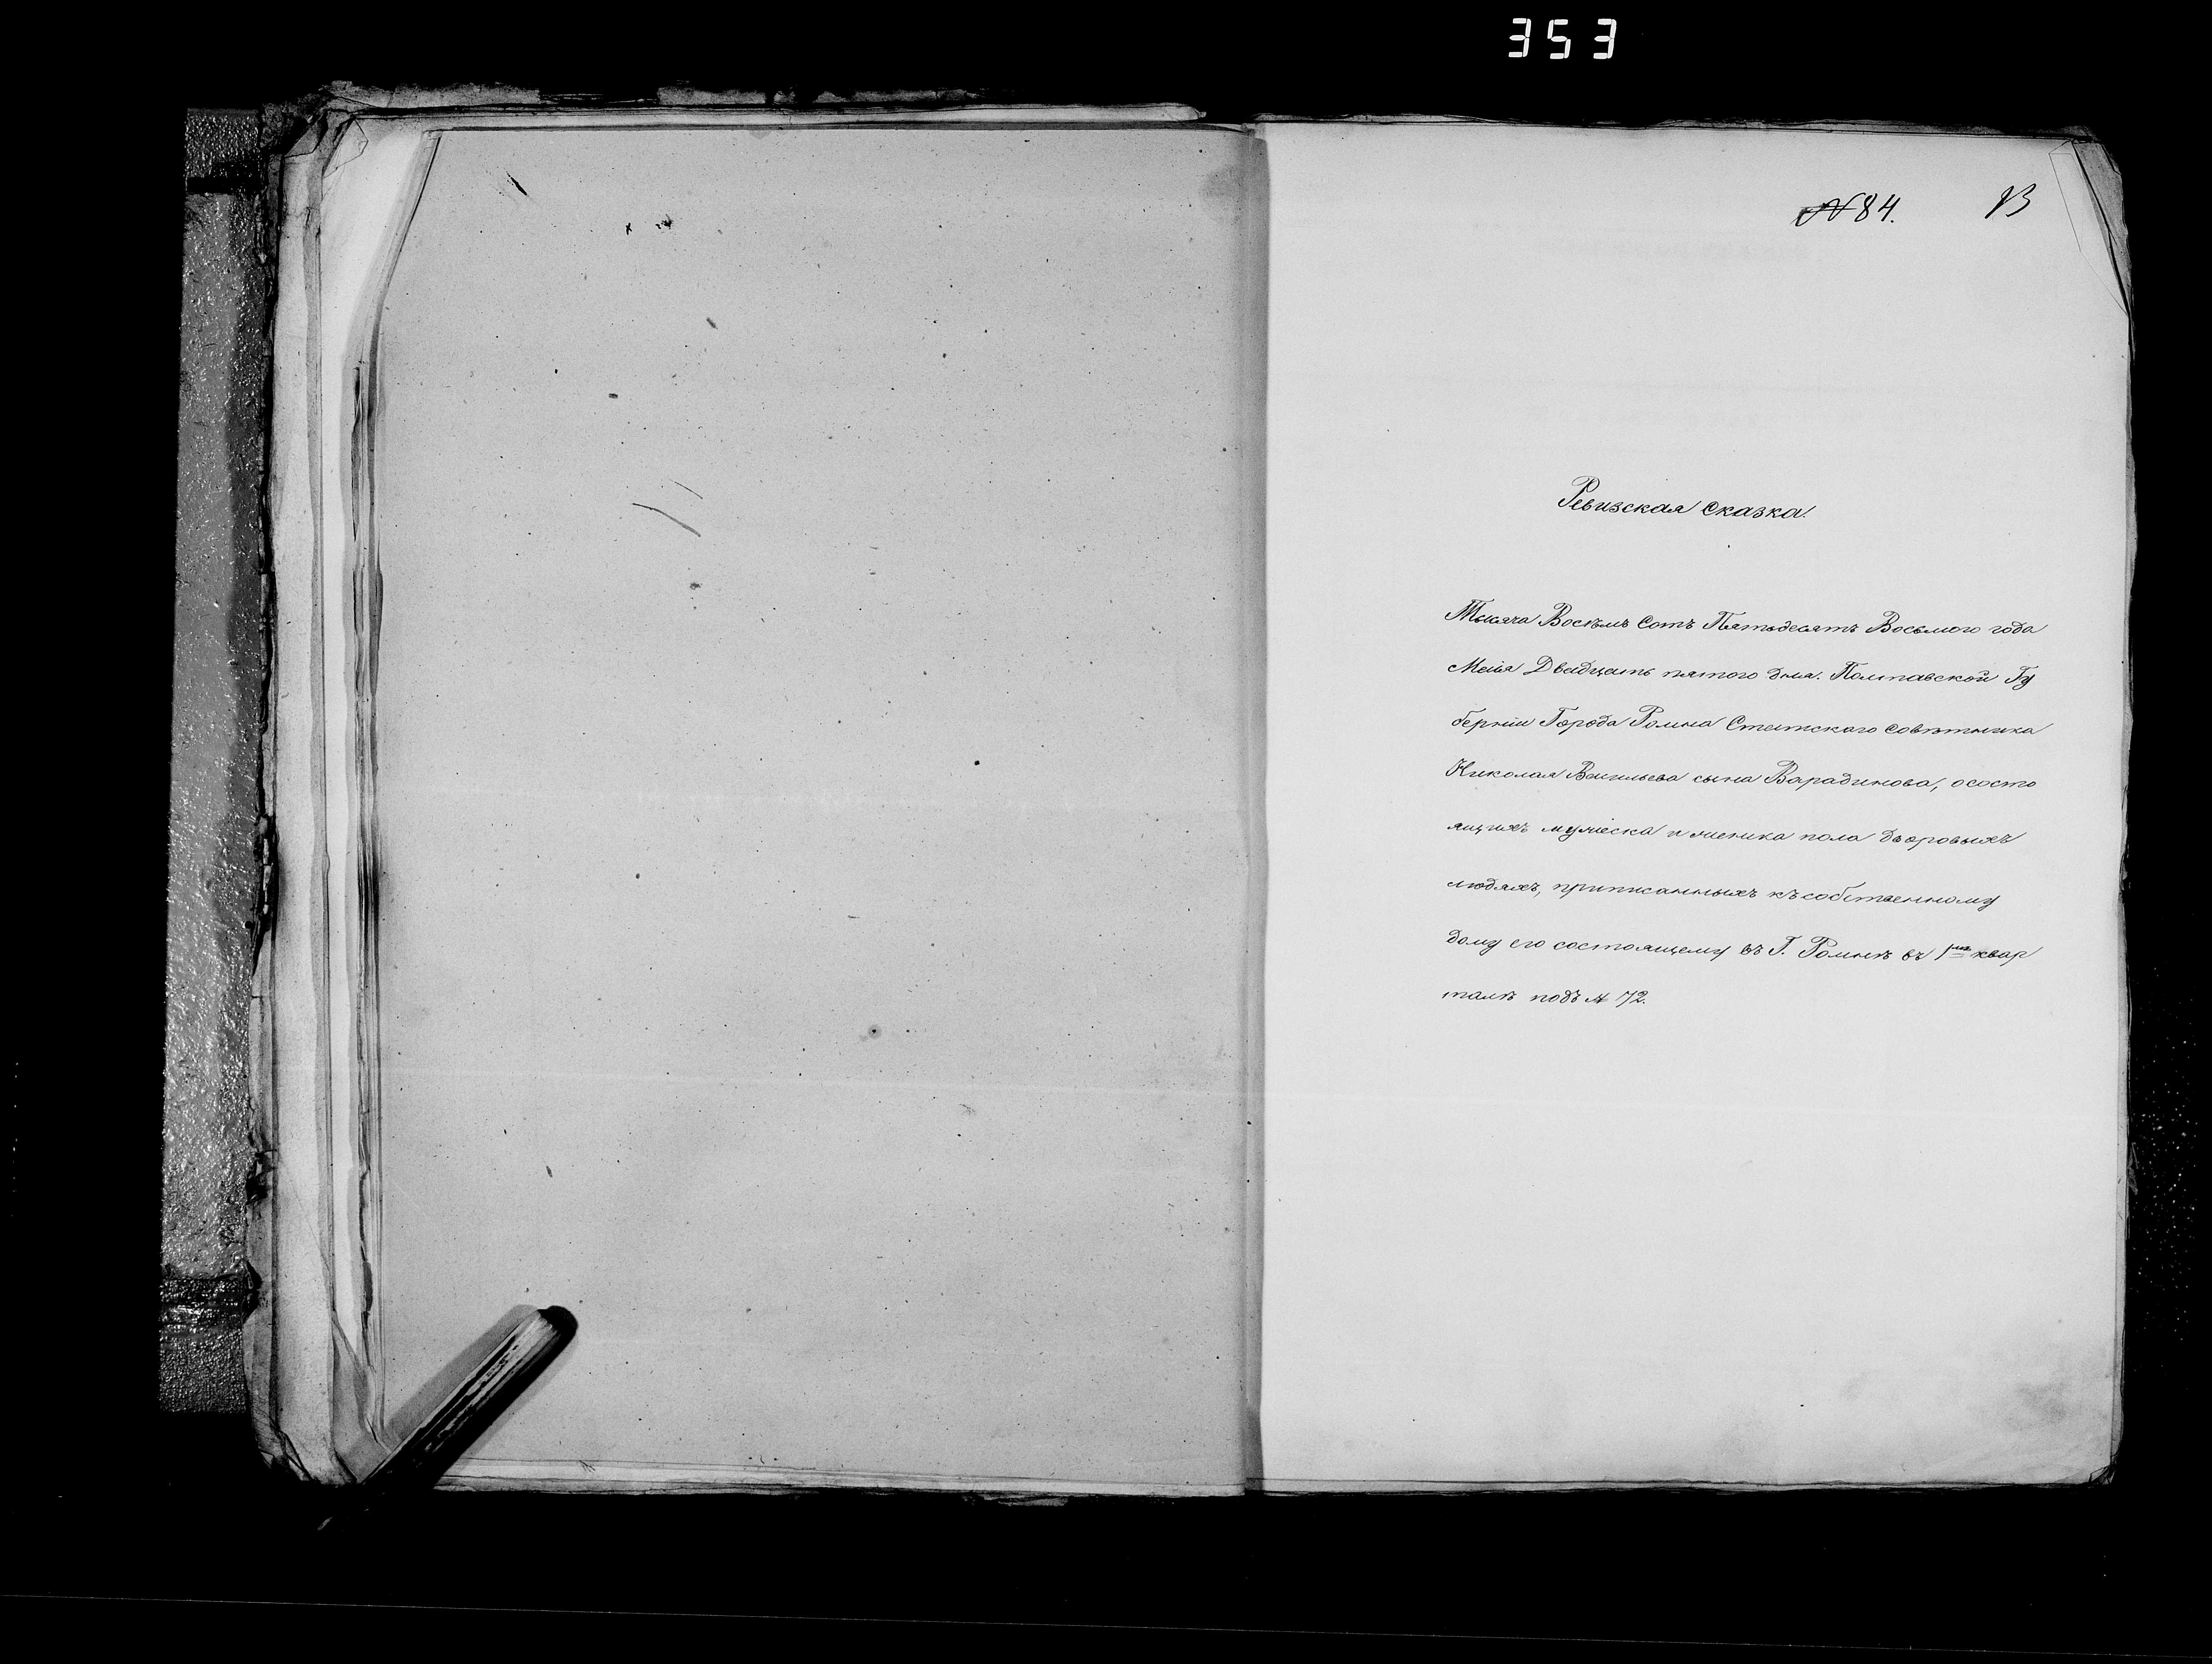 353
№ 84. В
Ревизская сказка.
Тысяча Восемь Сотъ Пятьдесятъ Восьмого года
Маiя Двадцать пятого дня. Полтавской Гу
бернiи Города Ромна Статского советника
Николая Васильева сына Варадинова, о состо
ящихъ мужеска и женска пола дворовыхъ
людяхъ, приписанныхъ къ собственному
дому его состоящему въ Г. Ромнѣ въ 1мъ квар
талѣ подъ № 72.